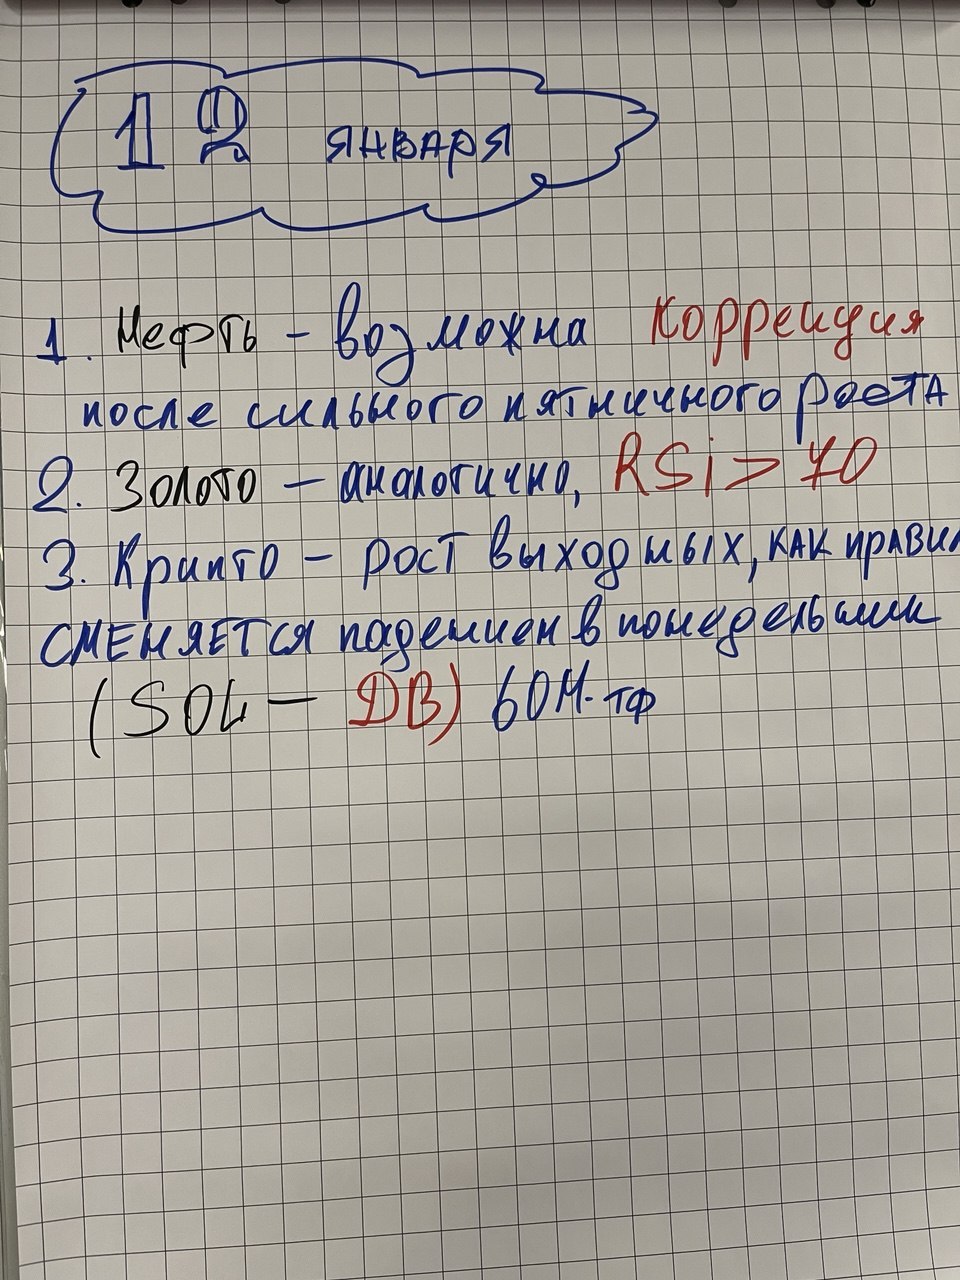 12 января
1. Нефть - возможна коррекция
после сильного пятничного роста
2. Золото - аналогично, RSi > 70
3. Крипто - рост выходных, как правил
сменяется падением в понедельник
(SOL - DB) 60М. тф